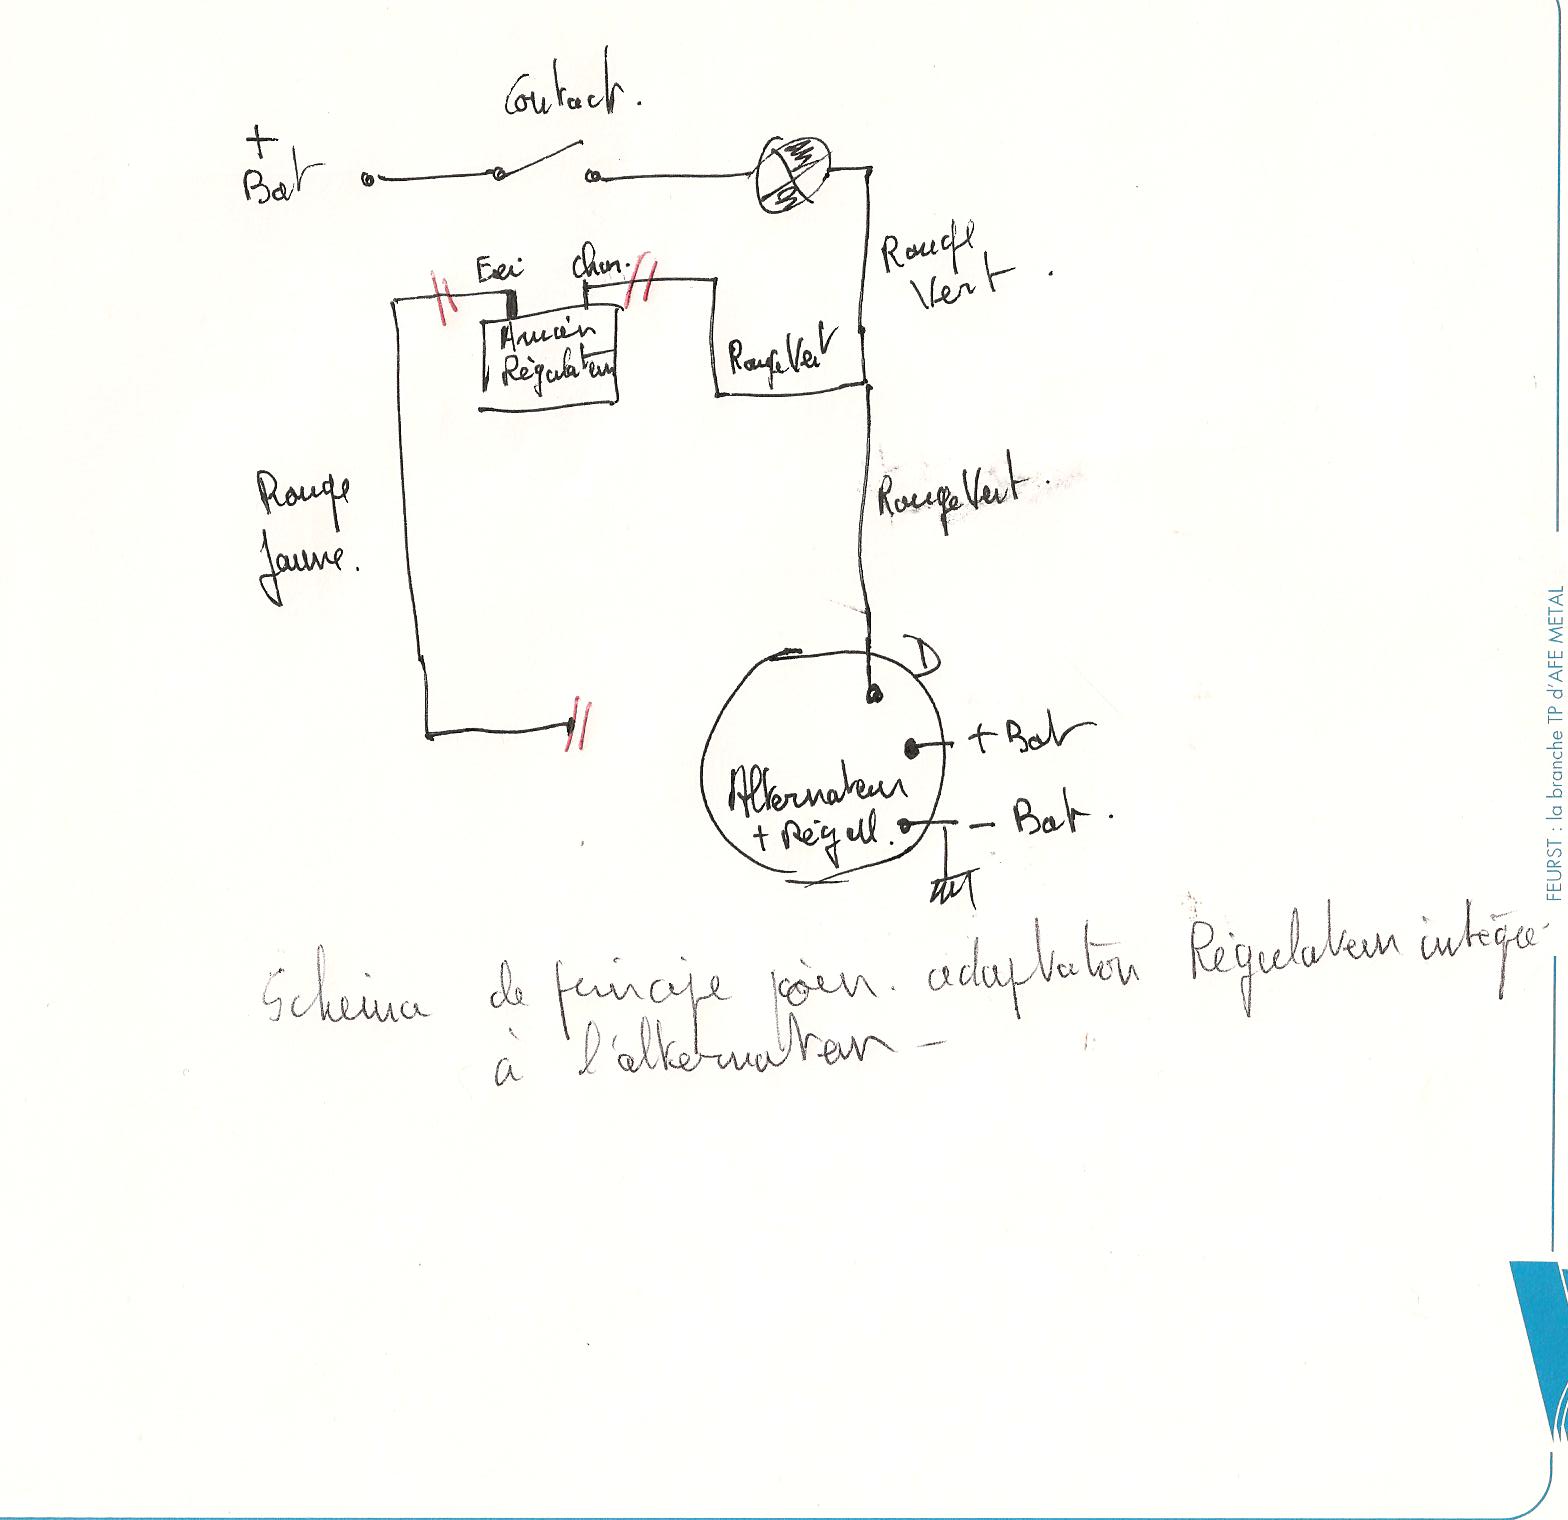 Contact.
+
Bat
Rouge
Vert.
Exi Char.
Ancien
Régulateur
Rouge Vert
Rouge
Jaune.
Rouge Vert.
D
+ Bat
Alternateur
+ Régul.
- Bat.
Schema de principe pour adaptation Régulateur intégré
à l'alternateur -
FEURST : la branche TP d'AFE METAL